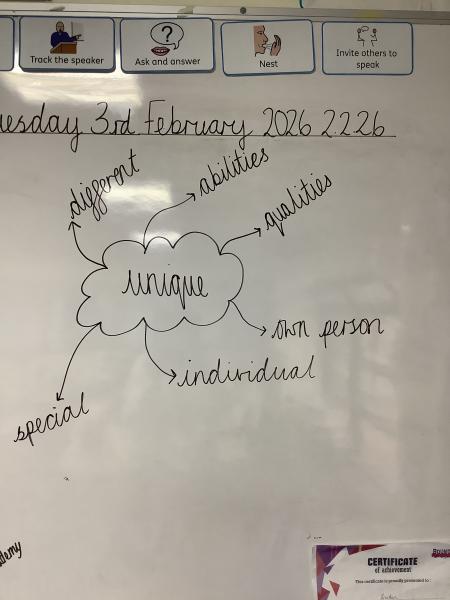 Track the speaker
Ask and answer
Nest
Invite others to
speak
uesday 3rd February 2026 2.2.26
different
abilities
qualities
unique
own person
individual
special
demy
CERTIFICATE
of achievement
This certificate is proudly presented to :